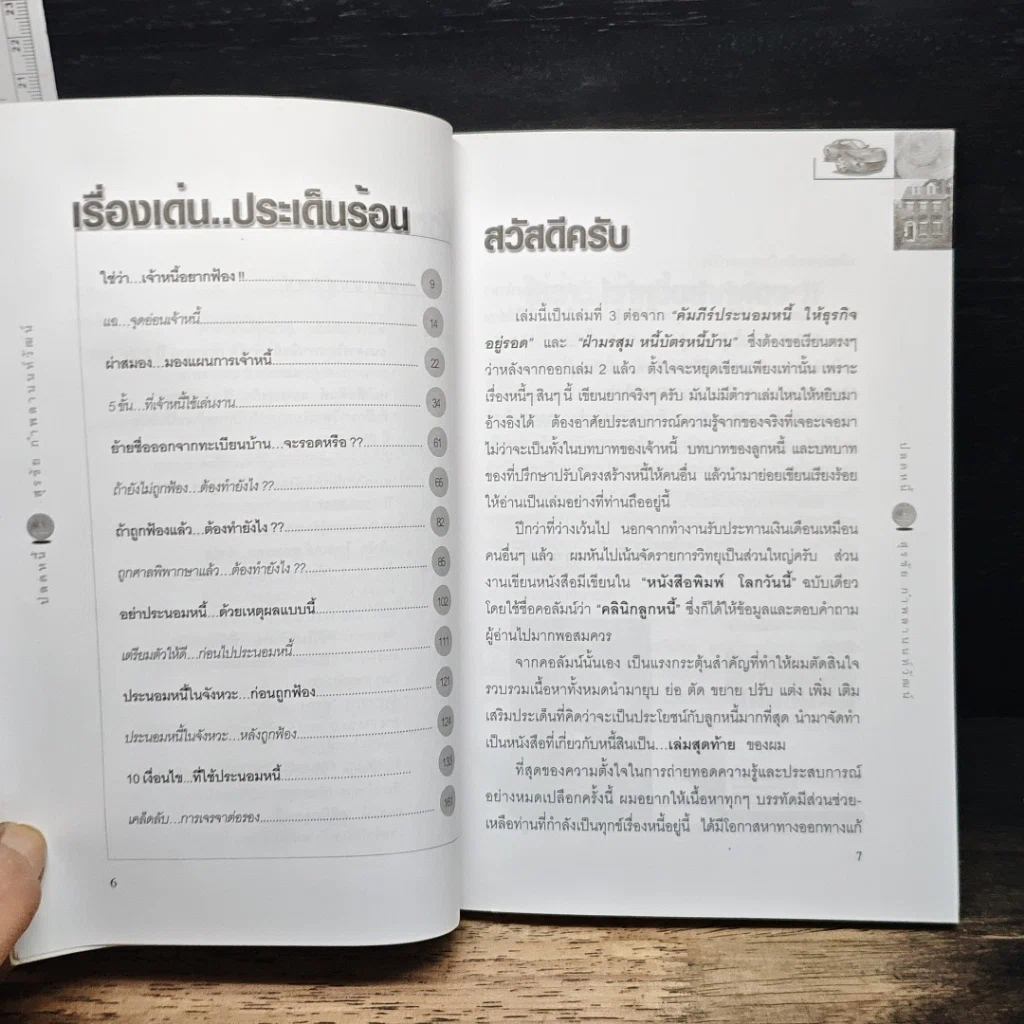 23
22
21
เรื่องเด่น..ประเด็นร้อน
ใช่ว่า...เจ้าหนี้อยากฟ้อง !! 9
แฉ...จุดอ่อนเจ้าหนี้ 14
ผ่าสมอง...มองแผนการเจ้าหนี้ 22
5 ขั้น...ที่เจ้าหนี้ใช้เล่นงาน 34
ย้ายชื่อออกจากทะเบียนบ้าน...จะรอดหรือ ?? 61
ถ้ายังไม่ถูกฟ้อง...ต้องทำยังไง ?? 65
ถ้าถูกฟ้องแล้ว...ต้องทำยังไง ?? 82
ถูกศาลพิพากษาแล้ว...ต้องทำยังไง ?? 85
อย่าประนอมหนี้...ด้วยเหตุผลแบบนี้ 102
เตรียมตัวให้ดี...ก่อนไปประนอมหนี้ 111
ประนอมหนี้ในจังหวะ...ก่อนถูกฟ้อง 121
ประนอมหนี้ในจังหวะ...หลังถูกฟ้อง 124
10 เงื่อนไข...ที่ใช้ประนอมหนี้ 133
เคล็ดลับ...การเจรจาต่อรอง 161
6
ปลดหนี้ สุรชัย กำพลานนท์วัฒน์
สวัสดีครับ
เล่มนี้เป็นเล่มที่ 3 ต่อจาก “คัมภีร์ประนอมหนี้ ให้ธุรกิจ
อยู่รอด” และ “ฝ่ามรสุม หนี้บัตรหนี้บ้าน” ซึ่งต้องขอเรียนตรงๆ
ว่าหลังจากออกเล่ม 2 แล้ว ตั้งใจจะหยุดเขียนเพียงเท่านั้น เพราะ
เรื่องหนี้ๆ สินๆ นี้ เขียนยากจริงๆ ครับ มันไม่มีตำราเล่มไหนให้หยิบมา
อ้างอิงได้ ต้องอาศัยประสบการณ์ความรู้จากของจริงที่เจอะเจอมา
ไม่ว่าจะเป็นทั้งในบทบาทของเจ้าหนี้ บทบาทของลูกหนี้ และบทบาท
ของที่ปรึกษาปรับโครงสร้างหนี้ให้คนอื่น แล้วนำมาย่อยเขียนเรียงร้อย
ให้อ่านเป็นเล่มอย่างที่ท่านถืออยู่นี้
ปีกว่าที่ว่างเว้นไป นอกจากทำงานรับประทานเงินเดือนเหมือน
คนอื่นๆ แล้ว ผมหันไปเน้นจัดรายการวิทยุเป็นส่วนใหญ่ครับ ส่วน
งานเขียนหนังสือมีเขียนใน “หนังสือพิมพ์ โลกวันนี้” ฉบับเดียว
โดยใช้ชื่อคอลัมน์ว่า “คลินิกลูกหนี้” ซึ่งก็ได้ให้ข้อมูลและตอบคำถาม
ผู้อ่านไปมากพอสมควร
จากคอลัมน์นั้นเอง เป็นแรงกระตุ้นสำคัญที่ทำให้ผมตัดสินใจ
รวบรวมเนื้อหาทั้งหมดนำมายุบ ย่อ ตัด ขยาย ปรับ แต่ง เพิ่ม เติม
เสริมประเด็นที่คิดว่าจะเป็นประโยชน์กับลูกหนี้มากที่สุด นำมาจัดทำ
เป็นหนังสือที่เกี่ยวกับหนี้สินเป็น...เล่มสุดท้าย ของผม
ที่สุดของความตั้งใจในการถ่ายทอดความรู้และประสบการณ์
อย่างหมดเปลือกครั้งนี้ ผมอยากให้เนื้อหาทุกๆ บรรทัดมีส่วนช่วย-
เหลือท่านที่กำลังเป็นทุกข์เรื่องหนี้อยู่นี้ ได้มีโอกาสหาทางออกทางแก้
7
ปลดหนี้ สุรชัย กำพลานนท์วัฒน์